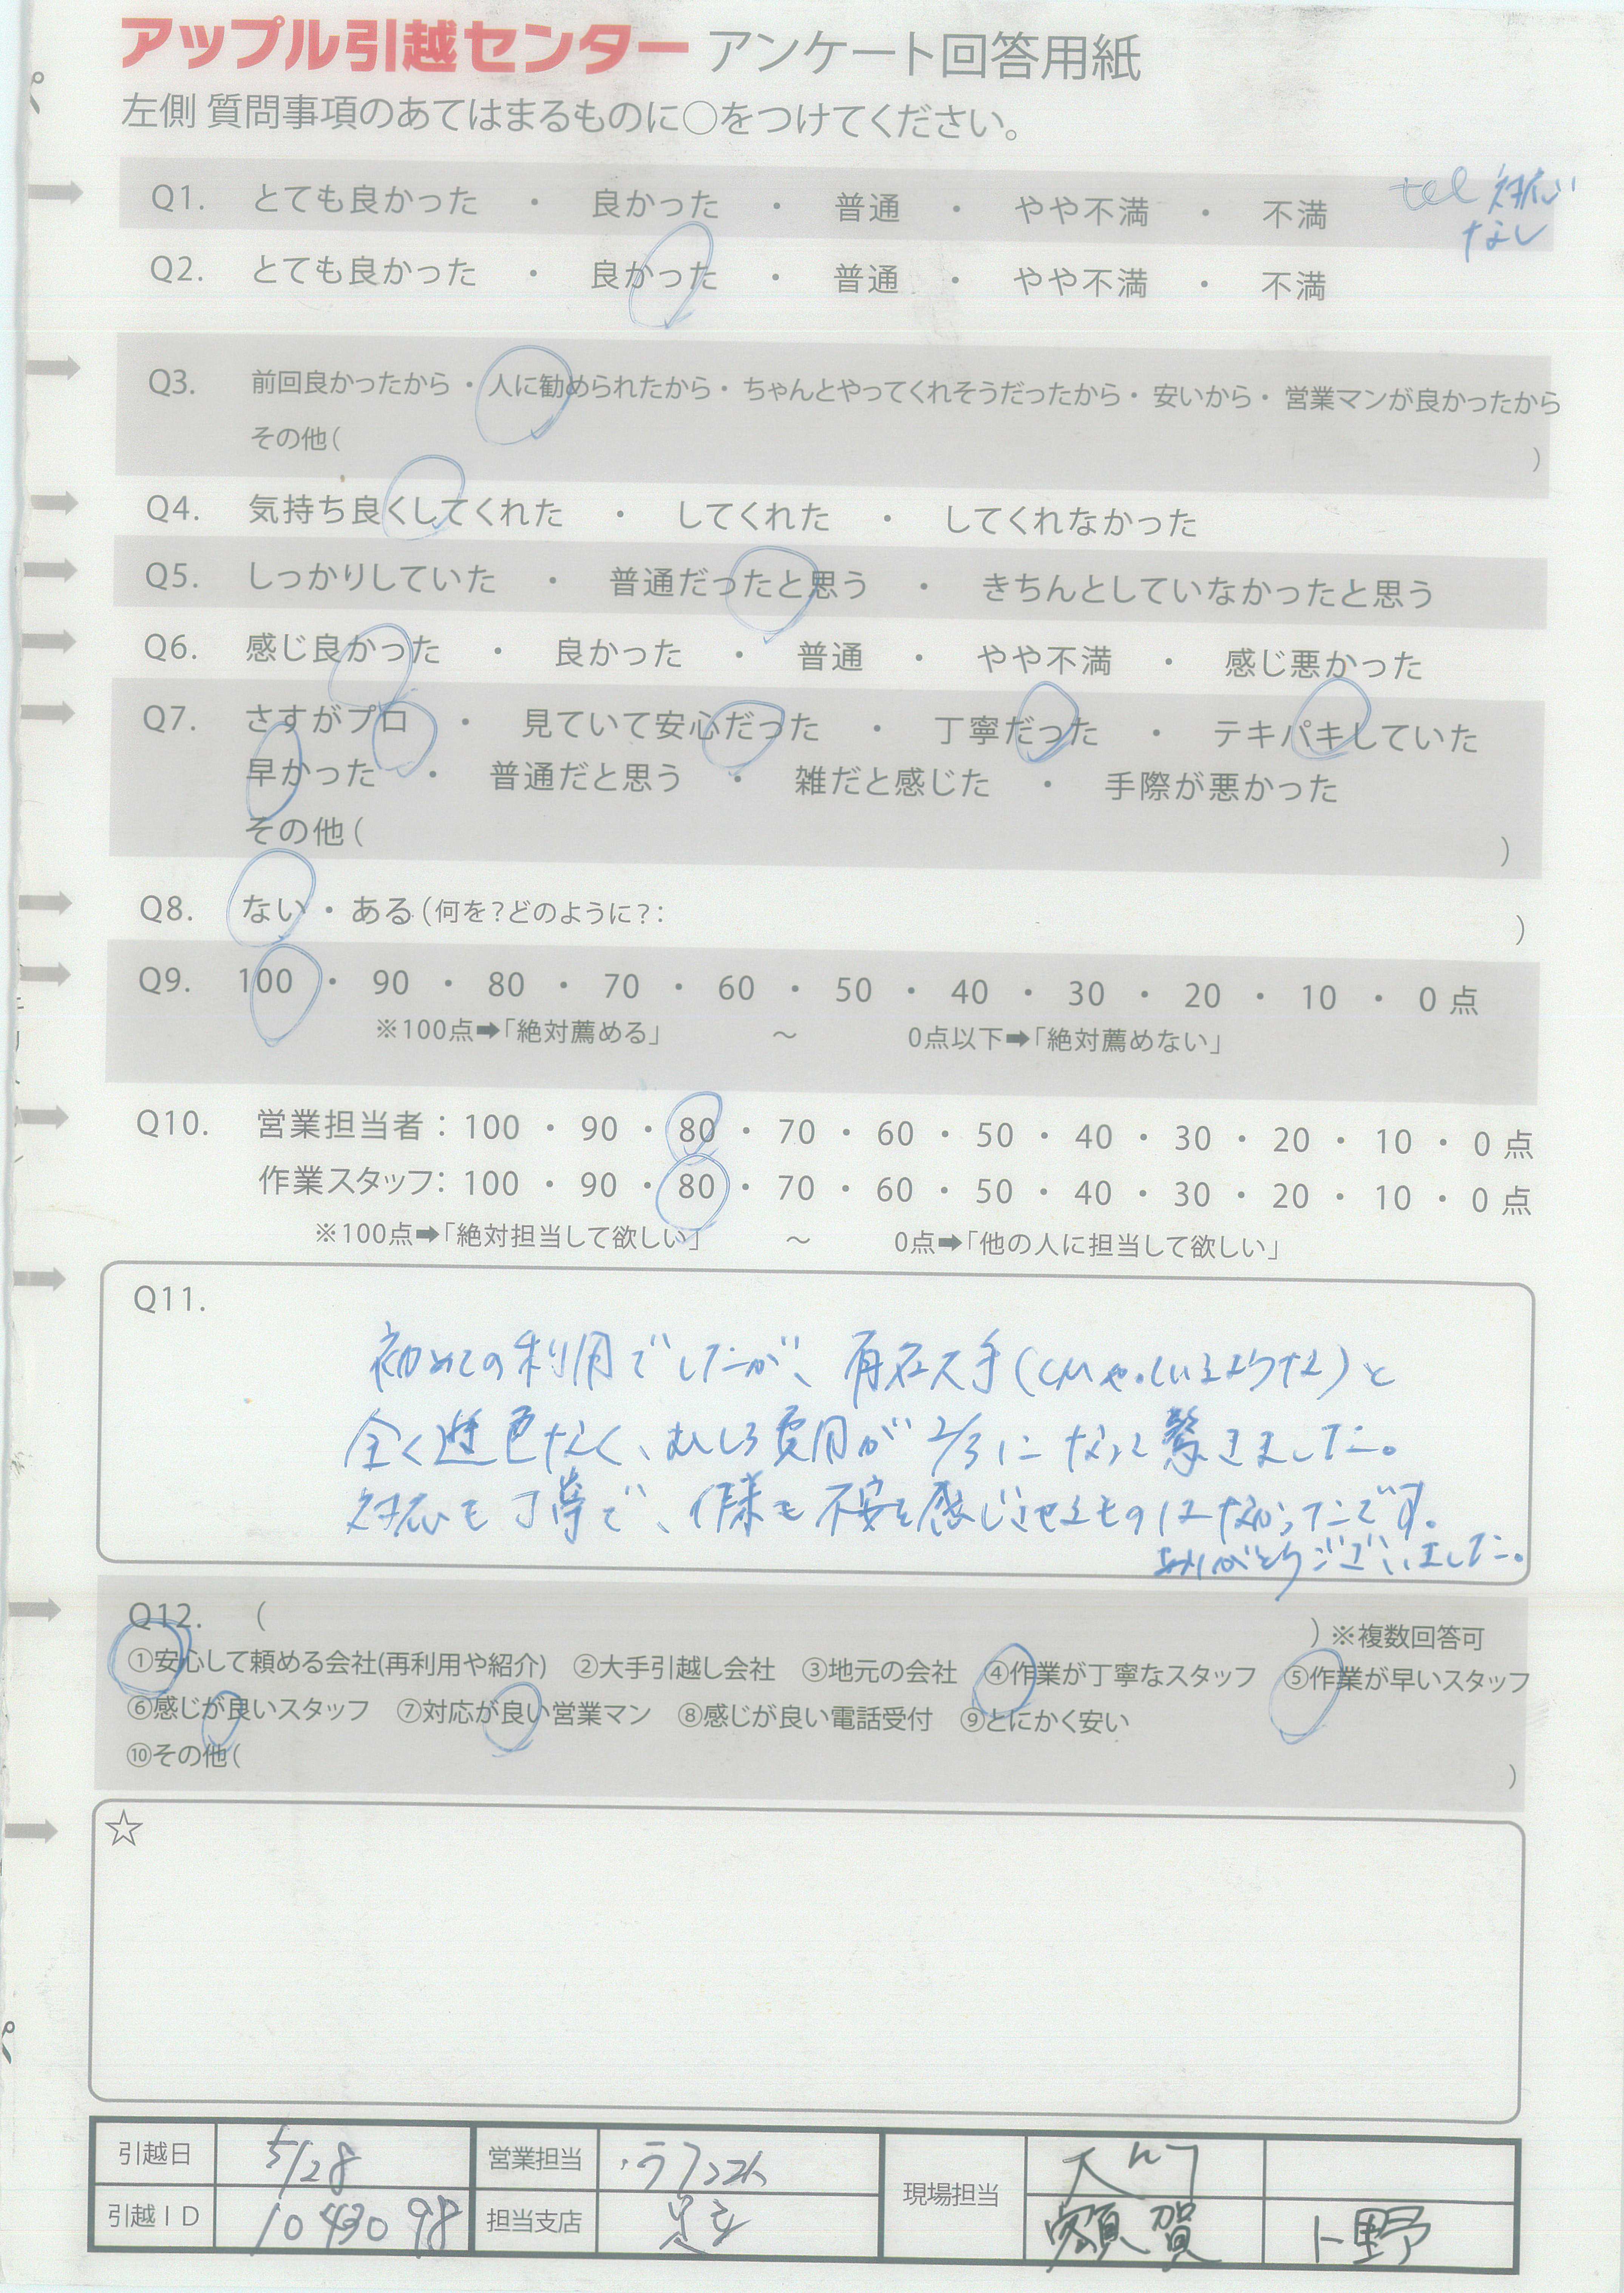 アップル引越センター アンケート回答用紙
左側 質問事項のあてはまるものに○をつけてください。
Q1. とても良かった ・ 良かった ・ 普通 ・ やや不満 ・ 不満
tel 対応
なし
Q2. とても良かった ・ 良かった ・ 普通 ・ やや不満 ・ 不満
Q3. 前回良かったから・人に勧められたから・ちゃんとやってくれそうだったから・安いから・営業マンが良かったから
その他( )
Q4. 気持ち良くしてくれた ・ してくれた ・ してくれなかった
Q5. しっかりしていた ・ 普通だったと思う ・ きちんとしていなかったと思う
Q6. 感じ良かった ・ 良かった ・ 普通 ・ やや不満 ・ 感じ悪かった
Q7. さすがプロ ・ 見ていて安心だった ・ 丁寧だった ・ テキパキしていた
早かった ・ 普通だと思う ・ 雑だと感じた ・ 手際が悪かった
その他( )
Q8. ない ・ ある(何を?どのように?: )
Q9. 100 ・ 90 ・ 80 ・ 70 ・ 60 ・ 50 ・ 40 ・ 30 ・ 20 ・ 10 ・ 0 点
※100点➡「絶対薦める」 ～ 0点以下➡「絶対薦めない」
Q10. 営業担当者：100 ・ 90 ・ 80 ・ 70 ・ 60 ・ 50 ・ 40 ・ 30 ・ 20 ・ 10 ・ 0 点
作業スタッフ：100 ・ 90 ・ 80 ・ 70 ・ 60 ・ 50 ・ 40 ・ 30 ・ 20 ・ 10 ・ 0 点
※100点➡「絶対担当して欲しい」 ～ 0点➡「他の人に担当して欲しい」
Q11.
初めての利用でしたが、有名大手(CMやっているような)と
全く遜色なく、むしろ費用が2/3になって驚きました。
対応も丁寧で、何様も不安を感じさせるものはなかったです。
ありがとうございました。
Q12. ( ) ※複数回答可
①安心して頼める会社(再利用や紹介) ②大手引越し会社 ③地元の会社 ④作業が丁寧なスタッフ ⑤作業が早いスタッフ
⑥感じが良いスタッフ ⑦対応が良い営業マン ⑧感じが良い電話受付 ⑨とにかく安い
⑩その他( )
☆
引越日 5/28 営業担当 現場担当
引越ID 1043098 担当支店 足立 額賀 上野